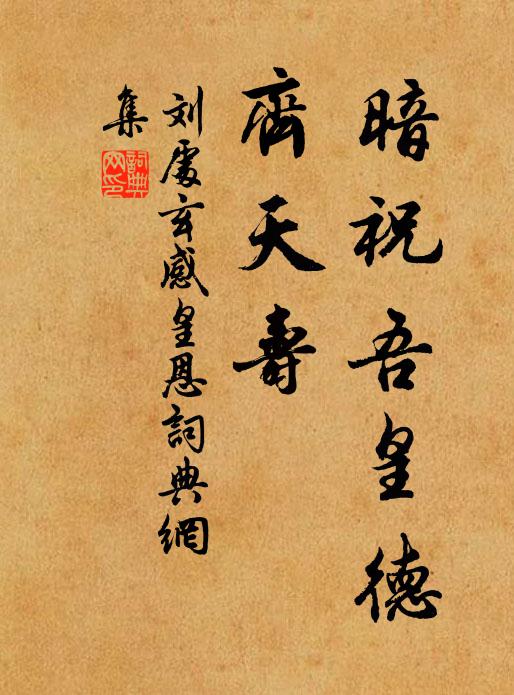 暗祝吾皇德
齊天壽
刘處玄感皇恩詞典網
集
詞典
网印